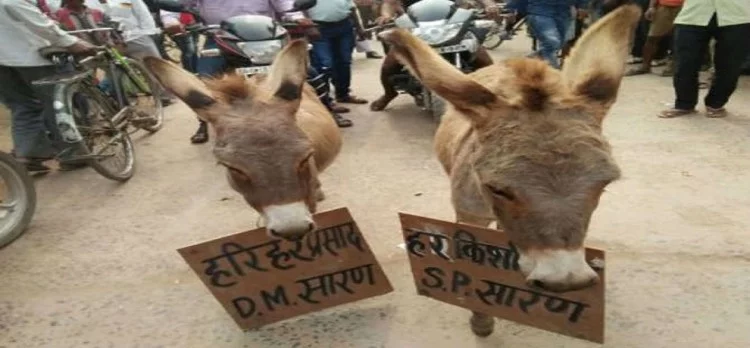 हरिहर प्रसाद
D.M. सारण
हर किशो
S.P. सारण